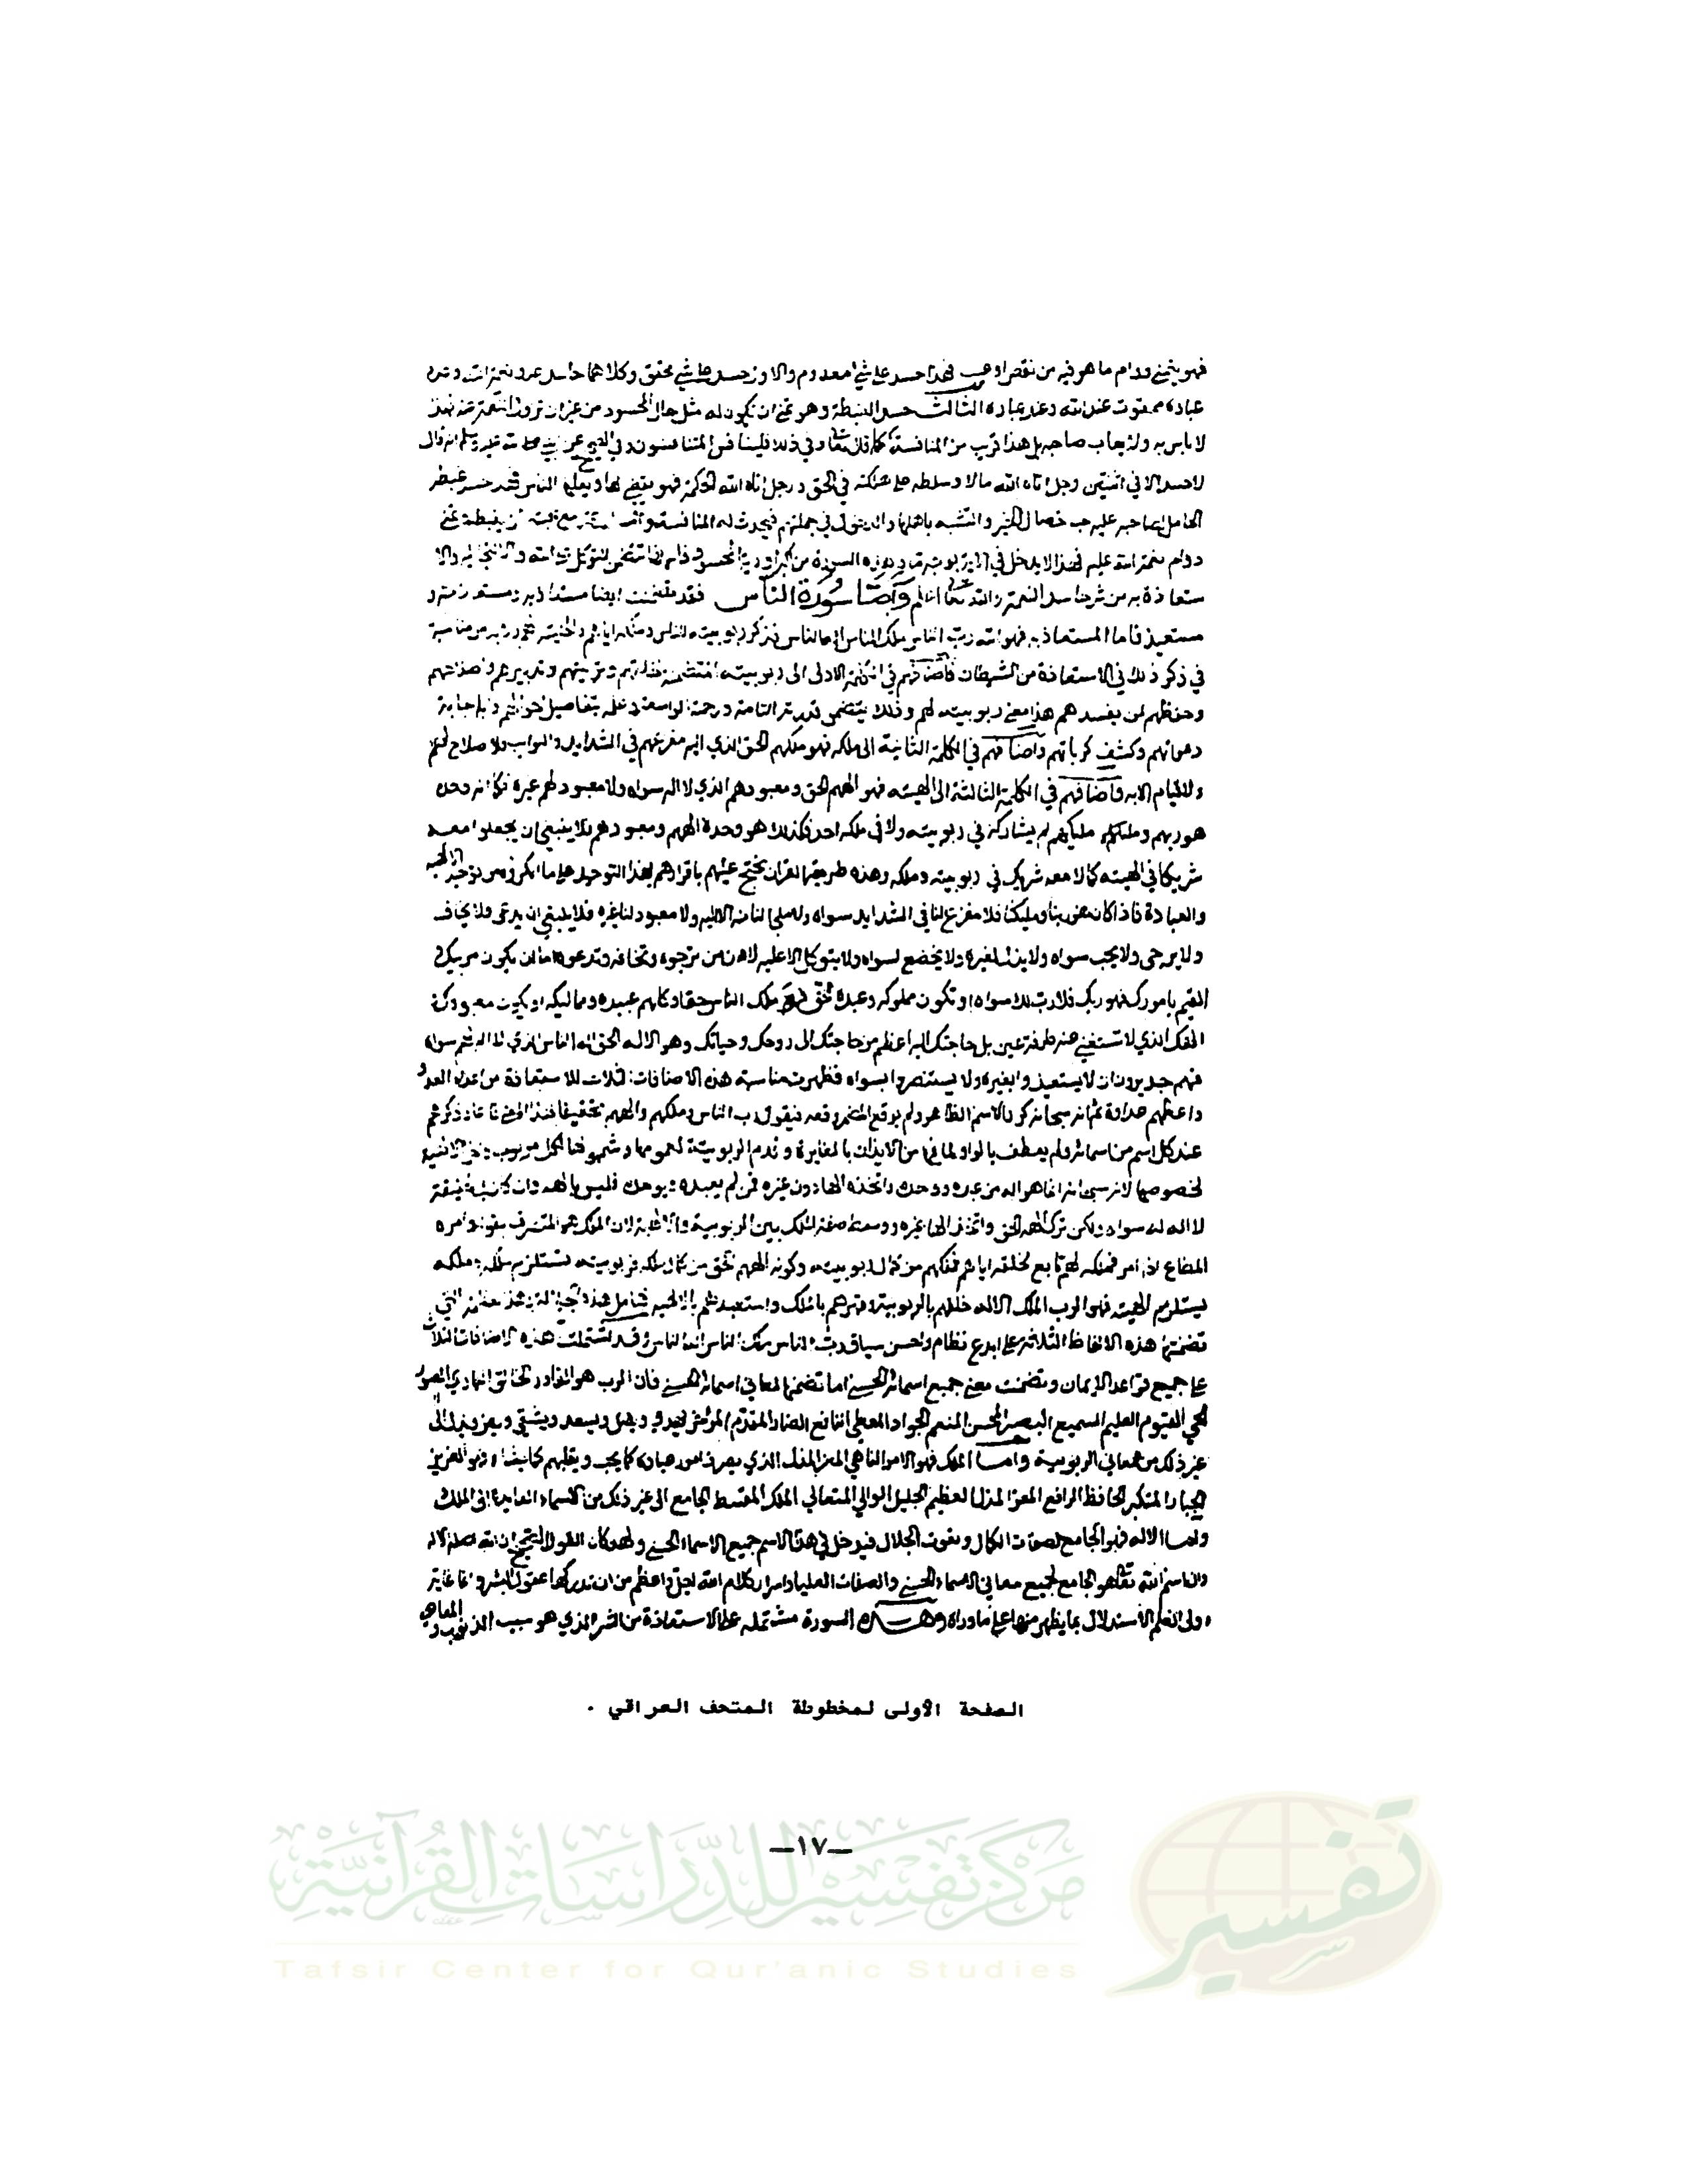 فهو يتمنى دوام ما هو فيه من نقص او عيب فهذا حسد على شي معدوم والاول حسد على شي محقق وكلاهما حاسد عدو نعمة الله وعدو
عباده ممقوت عند الله وعند عباده الثالث حسد الغبطة وهو تمني ان يكون له مثل حال المحسود من غير ان تزول النعمة عنه فهذا
لا باس به ولا يعاب صاحبه بل هذا قريب من المنافسة كما قال تعالى وفي ذلك فليتنافس المتنافسون وفي الصحيح عن النبي صلى الله عليه وسلم انه قال
لا حسد الا في اثنتين رجل اتاه الله مالا وسلطه على هلكته في الحق ورجل اتاه الله الحكمة فهو يقضي بها ويعلمها الناس فهذا حسد غبطة
الحامل لصاحبه عليه حب خصال الخير والتشبه باهلها والدخول في جملتهم فيحدث له المنافسة
دوام نعمة الله عليه فهذا لا يدخل في الاية بوجه ما وهذه السورة من اكبر ادوية المحسود فانها تتضمن التوكل على الله والالتجا اليه والا
ستعاذة به من شر حاسد النعمة والله تعالى اعلم واما سورة الناس فقد تضمنت ايضا مستعاذا به ومستعاذا منه و
مستعيذ فاما المستعاذ به فهو الله رب الناس ملك الناس اله الناس فذكر ربوبيته للناس وملكه اياهم والهيته لهم ولا بد من مناسبة
في ذكر ذلك في الاستعاذة من الشيطان فاضافهم في الكلمة الاولى الى ربوبيته المتضمنة لخلقهم وتربيتهم وتدبيرهم واصلاحهم
وحفظهم مما يفسدهم هذا معنى ربوبيته لهم وذلك يتضمن قدرته التامة ورحمته الواسعة وعلمه بتفاصيل احوالهم وباجابة
دعواتهم وكشف كرباتهم واضافهم في الكلمة الثانية الى ملكه فهو ملكهم الحق الذي اليه مفزعهم في الشدايد والنوايب فلا صلاح لهم
ولا قيام الا به واضافهم في الكلمة الثالثة الى الهيته فهو الههم الحق ومعبودهم الذي لا اله سواه ولا معبود لهم غيره فكما انه وحده
هو ربهم ومليكهم لم يشاركه في ربوبيته ولا في ملكه احد فكذلك هو وحده الههم ومعبودهم فلا ينبغي ان يجعلوا معه
شريكا في الهيته كما لا معه شريك في ربوبيته وملكه وهذه طريقة القران يحتج عليهم باقرارهم بهذا التوحيد على ما انكروه من توحيد الالهية
والعبادة فاذا كان هو ربنا ومليكنا فلا مفزع لنا في الشدايد سواه ولا ملجا لنا منه الا اليه ولا معبود لنا غيره فلا ينبغي ان يدعى ولا يخاف
ولا يرجى ولا يحب سواه ولا يذل لغيره ولا يخضع لسواه ولا يتوكل الا عليه لان من ترجوه وتخافه وتدعوه اما ان يكون مربيك
القيم بامورك فهو ربك فلا رب لك سواه او تكون مملوكه وعبده الحق فهو ملك الناس حقا وكلهم عبيده ومماليكه او يكون معبودك
الهك الذي لا تستغني عنه طرفة عين بل حاجتك اليه اعظم من حاجتك الى روحك وحياتك وهو الاله الحق اله الناس الذي لا اله لهم سواه
فهم جديرون ان لا يستعيذوا بغيره ولا يستنصروا بسواه فظهرت مناسبة هذه الاضافات الثلاث للاستعاذة من اعدى العدو
واعظمهم عداوة ثم انه سبحانه كرر الاسم الظاهر ولم يوقع المضمر موقعه فيقول رب الناس وملكهم والههم تحقيقا لهذا المعنى فاعاد ذكرهم
عند كل اسم من اسمائه ولم يعطف بالواو لما فيها من الايذان بالمغايرة وقدم الربوبية لعمومها وشمولها لكل مربوب واخر الالهية
لخصوصها لانه سبحانه انما هو اله من عبده ووحده واتخذه الها دون غيره فمن لم يعبده ويوحده فليس بالهه وان كان في الحقيقة
لا اله له سواه ولكن ترك الهه الحق واتخذ الها غيره ووسط صفة الملك بين الربوبية والالهية لان الملك هو المتصرف بقوله وامره
المطاع اذا امر فملكه لهم تابع لخلقه اياهم فملكهم من كمال ربوبيته وكونه الههم الحق من كمال ملكه فربوبيته تستلزم ملكه وملكه
يستلزم الهيته فهو الرب الملك الاله خلقهم بالربوبية وقهرهم بالملك واستعبدهم بالالهية فتامل هذه الجلالة وهذه العظمة التي
تضمنتها هذه الالفاظ الثلاثة على ابدع نظام واحسن سياق رب الناس ملك الناس اله الناس وقد اشتملت هذه الاضافات الثلاث
على جميع قواعد الايمان وتضمنت معنى جميع اسمائه الحسنى اما تضمنها لمعاني اسمائه الحسنى فان الرب هو القادر الخالق البارئ المصور
الحي القيوم العليم السميع البصير المحسن المنعم الجواد المعطي المانع الضار المقدم المؤخر الذي يهدي ويضل ويسعد ويشقي ويعز ويذل الى
غير ذلك من معاني الربوبية واما الملك فهو الامر الناهي المعز المذل الذي يصرف امور عباده كما يحب ويقلبهم كما يشاء وهو العزيز
الجبار المتكبر الحافظ الرافع المعز المذل العظيم الجليل الوالي المتعالي الملك المقسط الجامع الى غير ذلك من الاسماء العايدة الى الملك
واما الاله فهو الجامع لصفات الكمال ونعوت الجلال فيدخل في هذا الاسم جميع الاسماء الحسنى ولهذا كان القول الصحيح ان الله اصله الاله
وان اسم الله تعالى هو الجامع لجميع معاني الاسماء الحسنى والصفات العليا واسرار كلام الله اجل واعظم من ان تدركها عقول البشر وانما غاية
اولي العلم الاستدلال بما يظهر منها على ما وراه وهذه السورة مشتملة على الاستعاذة من الشر الذي هو سبب الذنوب والمعاصي
الصفحة الأولى لمخطوطة المتحف العراقي .
—١٧—
مركز تفسير للدراسات القرآنية
Tafsir Center for Qur'anic Studies
تفسير